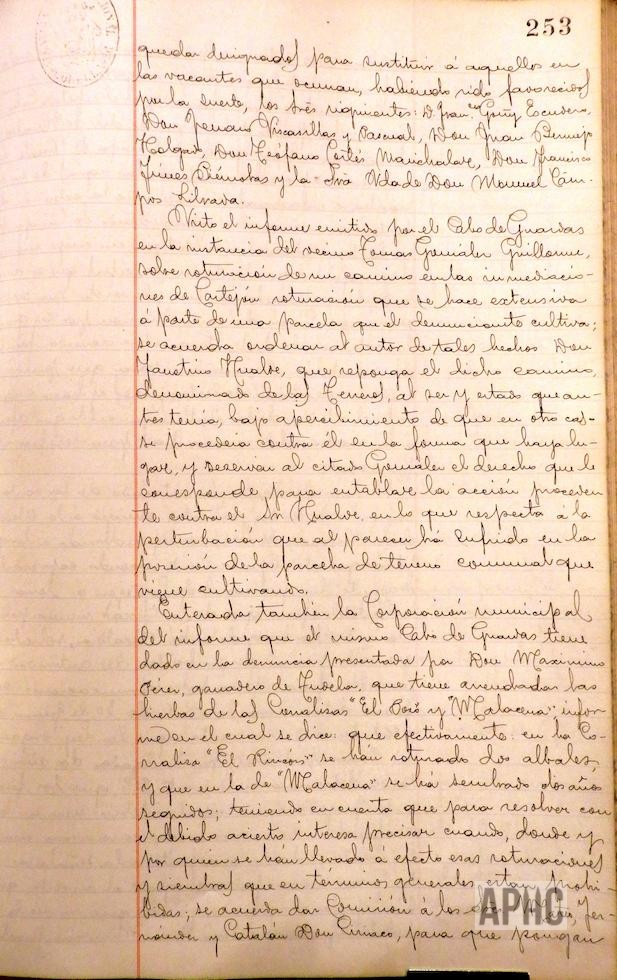 253
quedar designados para sustituir á aquellos en
las vacantes que ocurran, habiendo sido favorecidos
por la suerte, los Srs siguientes: D. Fran.co Goñi Escudero,
Don Genaro Viscasillas y Pascual, Don Juan Bermejo
Holgado, Don Teófano Cortés Marichalar, Don Francisco
Funes y la Sra Vda de Don Manuel Cam-
pos Librada.
Visto el informe emitido por el Cabo de Guardas
en la instancia del vecino Tomas González Guillorme,
sobre roturación de un camino en las inmediacio-
nes de Castejón roturación que se hace extensiva
á parte de una parcela que el denunciante cultiva;
se acuerda ordenar al autor de tales hechos Don
Faustino Hualde, que reponga el dicho camino,
denominado de las Teneros, al ser y estado que an-
tes tenia, bajo apercibimiento de que en otro caso
se procedera contra él en la forma que haya lu-
gar, y reservar al citado González el derecho que le
corresponde para entablar la acción proceden
te contra el Sr Hualde, en lo que respecta á la
perturbación que al parecer há sufrido en la
posesión de la parcela de terreno comunal que
viene cultivando.
Enterada también la Corporación municipal
del informe que el mismo Cabo de Guardas tiene
dado en la denuncia presentada por Don Maximino
Pérez, ganadero de Tudela, que tiene arrendadas las
hierbas de las Corralizas "El Bozo y "Malacena", infor-
me en el cual se dice: que efectivamente: en la Co-
rraliza "El Rincón" se hán roturado dos albales,
y que en la de "Malacena" se há sembrado dos años
seguidos; teniendo en cuenta que para resolver con
el debido acierto interesa precisar cuando, donde y
por quien se hán llevado á efecto esas roturaciones
y siembras que en términos generales estan prohi-
bidas; se acuerda dar Comisión á los Fer-
nández y Catalán Don Ciriaco, para que pongan
APMC